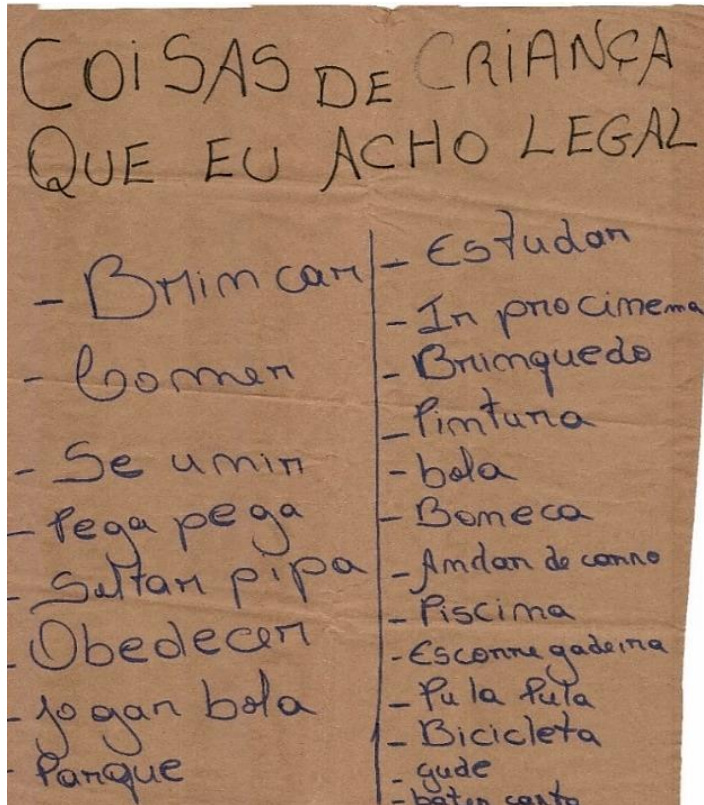 COISAS DE CRIANÇA
QUE EU ACHO LEGAL
- Brincar
- Comer
- Se unir
- Pega pega
- Soltar pipa
- Obedecer
- jogar bola
- Parque
- Estudar
- Ir pro cinema
- Brinquedo
- Pintura
- bola
- Boneca
- Andar de carro
- Piscina
- Escorregadeira
- Pula Pula
- Bicicleta
- gude
- bater